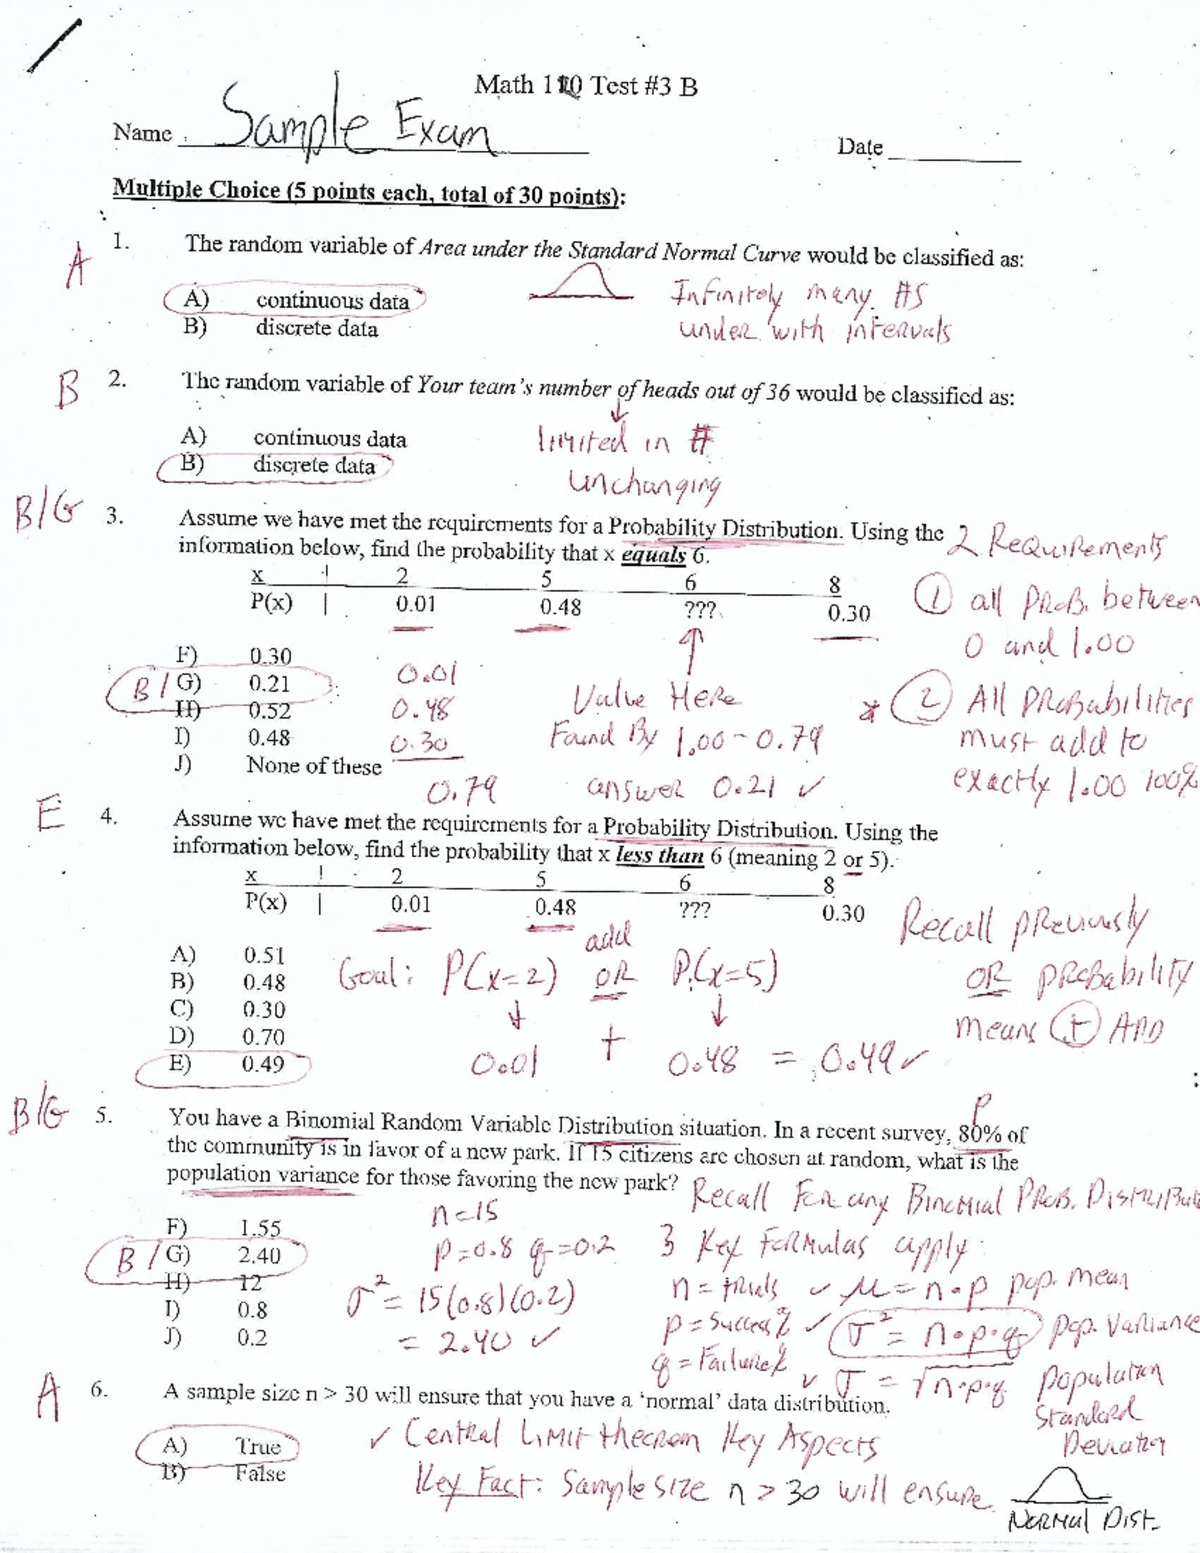 Math 110 Test #3 B
Name Sample Exam Date
Multiple Choice (5 points each, total of 30 points):
A 1. The random variable of Area under the Standard Normal Curve would be classified as:
A) continuous data Infinitely many #s
B) discrete data under with intervals
B 2. The random variable of Your team's number of heads out of 36 would be classified as:
A) continuous data limited in #
B) discrete data unchanging
B/G 3. Assume we have met the requirements for a Probability Distribution. Using the 2 Requirements
information below, find the probability that x equals 6.
x | 2 5 6 8 ① all Prob. between
P(x) | 0.01 0.48 ??? 0.30 0 and 1.00
F) 0.30 0.01
B/ G) 0.21 0.48 Value Here * ② All Probabilities
H) 0.52 0.30 Found By 1.00 - 0.79 must add to
I) 0.48 0.79 answer 0.21 ✓ exactly 1.00 100%
J) None of these
E 4. Assume we have met the requirements for a Probability Distribution. Using the
information below, find the probability that x less than 6 (meaning 2 or 5).
x | 2 5 6 8
P(x) | 0.01 0.48 ??? 0.30 Recall previously
add
A) 0.51 Goal: P(x=2) OR P(x=5) OR probability
B) 0.48 means + ADD
C) 0.30
D) 0.70 0.01 + 0.48 = 0.49 ✓
E) 0.49
B/G 5. You have a Binomial Random Variable Distribution situation. In a recent survey, 80% of
P
the community is in favor of a new park. If 15 citizens are chosen at random, what is the
population variance for those favoring the new park? Recall For any Binomial Prob. Distribut
F) 1.55 n=15 3 Key Formulas apply:
B/ G) 2.40 p=0.8 q=0.2 n = trials ✓ μ = n·p pop. mean
H) 12 σ² = 15(0.8)(0.2) p = success % ✓ σ² = n·p·q pop. Variance
I) 0.8 = 2.40 ✓ q = Failure % ✓ σ = √n·p·q population
J) 0.2 Standard
Deviation
A 6. A sample size n > 30 will ensure that you have a 'normal' data distribution.
A) True ✓ Central Limit theorem Key Aspects
B) False Key Fact: Sample size n > 30 will ensure
Normal Dist.